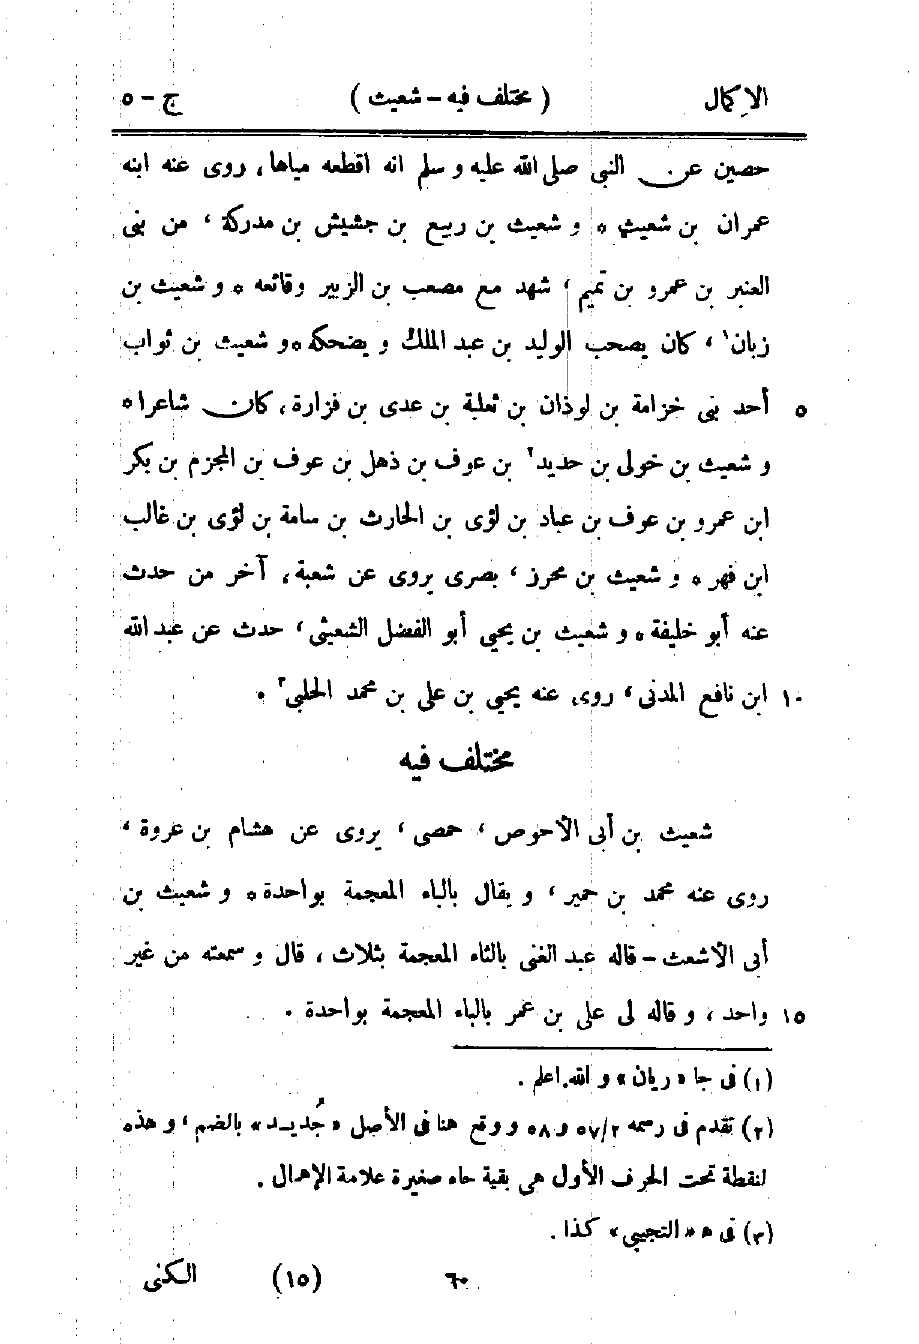 الإكمال ( مختلف فيه – شعيث ) ج – ٥
حصين عن النبى صلى الله عليه و سلم انه اقطعه مياها، روى عنه ابنه
عمران بن شعيث ٥ و شعيث بن ربيع بن جشيش بن مدركة ، من بنى
العنبر بن عمرو بن تميم ، شهد مع مصعب بن الزبير وقائعه ٥ و شعيث بن
زبان١ ، كان يصحب الوليد بن عبد الملك و يضحكه ٥ و شعيث بن ثواب
٥ أحد بنى خزامة بن لوذان بن ثعلبة بن عدى بن فزارة، كان شاعرا ٥
و شعيث بن خولى بن حديد٢ بن عوف بن ذهل بن عوف بن المجزم بن بكر
ابن عمرو بن عوف بن عباد بن لؤى بن الحارث بن سامة بن لؤى بن غالب
ابن فهر ٥ و شعيث بن محرز ، بصرى يروى عن شعبة، آخر من حدث
عنه أبو خليفة ٥ و شعيث بن يحيى أبو الفضل الشعيثى ، حدث عن عبد الله
١٠ ابن نافع المدنى ، روى عنه يحيى بن على بن محمد الحلبى٣ .
مختلف فيه
شعيث بن أبى الأحوص ، حمصى ، يروى عن هشام بن عروة ،
روى عنه محمد بن حمير ، و يقال بالباء المعجمة بواحدة ٥ و شعيث بن
أبى الأشعث – قاله عبد الغنى بالثاء المعجمة بثلاث ، قال و سمعته من غير
١٥ واحد ، و قاله لى على بن عمر بالباء المعجمة بواحدة .
(١) فى جا « ريان » و الله اعلم .
(٢) تقدم فى رسمه ٥٧/٢ و ٥٨ و وقع هنا فى الأصل « جُديد » بالضم ، و هذه
لنقطة تحت الحرف الأول هى بقية حاء صغيرة علامة الإهمال .
(٣) فى ه « التجيبى » كذا .
٦٠ (١٥) الكنى